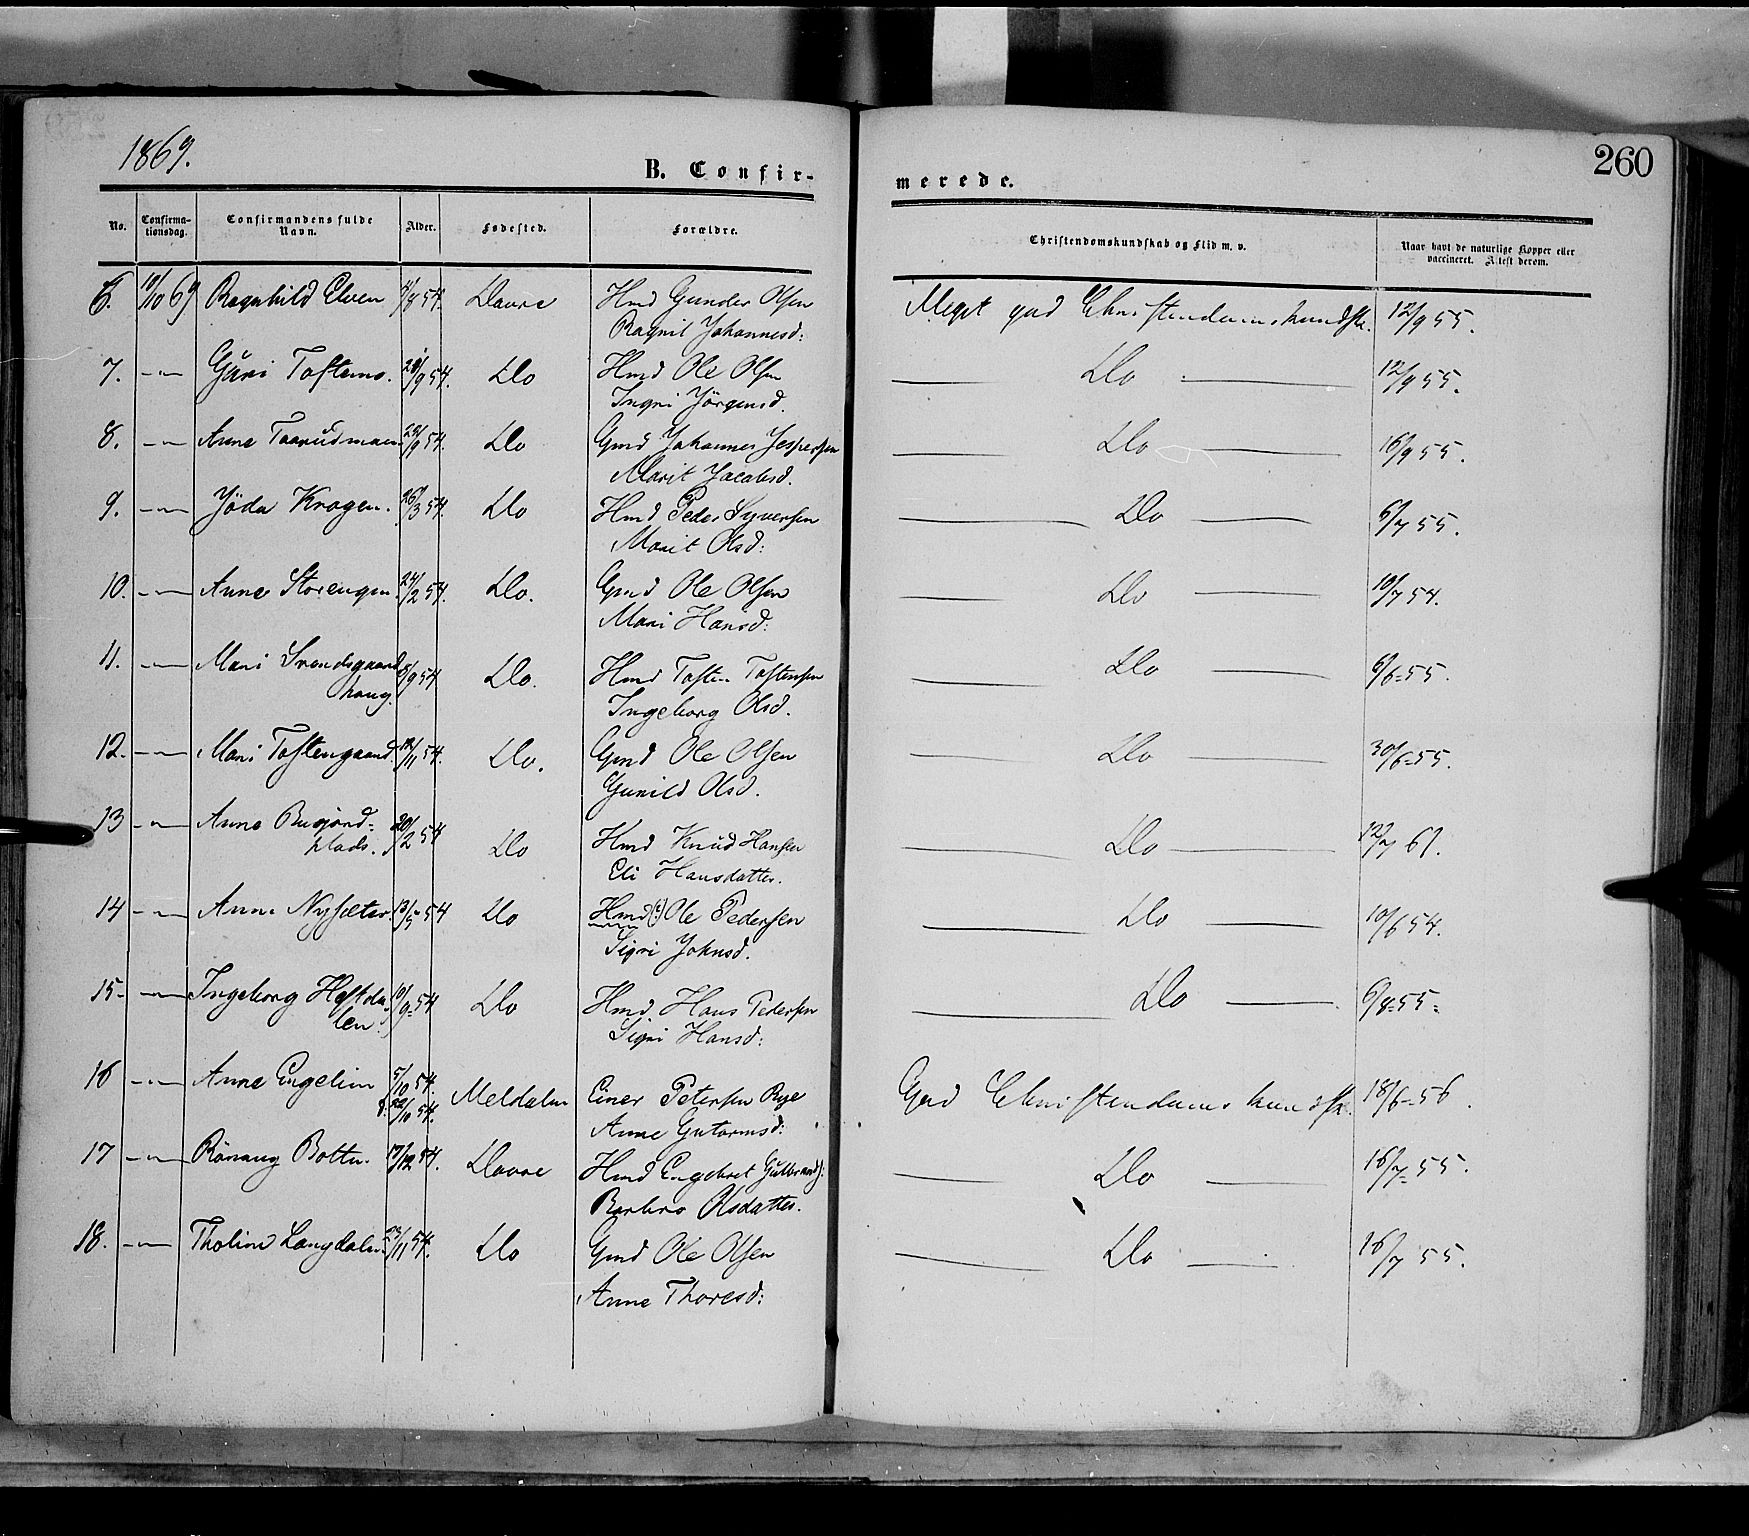 1869.
B. Confir-
merede.
260
No.
Confirma-
tionsdag.
Confirmandens fulde
Navn.
Alder.
Fødested.
Forældre.
Christendomskundskab og Flid m. v.
Naar havt de naturlige Kopper eller
vaccineret. Attest derom.
6. 10/10 69 Ragnhild Elven 54. Dovre Hmd Gunder Olsen Meget god Christendomskundsk. 12/9 55.
Ragnil Johannesd:
7. -"- Guri Toftemo. /9 54. Do Hmd Ole Olsen Do 12/9 55.
Ingri Jörgensd.
8. -"- Anne Taarudmoen. 24/9 54. Do Gmd Johannes Jespersen Do 16/9 55.
Marit Jacobsd.
9. -"- Jöda Krogen. 26/3 54. Do Hmd Peder Syversen Do 6/7 55.
Marit Olsd:
10. -"- Anne Storengen. 24/2 54. Do. Gmd Ole Olsen Do 10/7 54.
Mari Hansd:
11. -"- Mari Svendsgaard /9 54 Do. Hmd Tosten Tostensen Do 6/6=55.
haug. Ingeborg Olsd.
12. -"- Mari Toftengaard. 12/11 54. Do. Gmd Ole Olsen Do 30/6=55.
Gunild Olsd.
13 -"- Anne Busjord= 20/2 54 Do Hmd Knud Hansen Do 12/7 61.
plads. Eli Hansdatter.
14 -"- Anne Nysæter. 13/5 54 Do Hmd(?) Ole Pedersen Do 10/6 54.
Sigri Johnsd.
15- -"- Ingeborg Hjeftda 10/9=54 Do Hmd. Hans Pedersen Do 6/8=55=
len. Sigri Hansd:
16 -"- Anne Engelien 5/10 54. Meldalen Einer Petersen Rye God Christendomskundsk. 18/6=56.
22/10 54. Anne Gutormsd:
17 -"- Rönnaug Botten. 17/12 54. Dovre Hmd Engebret Gulbrands: Do 16/7=55.
Barbro Olsdatter.
18. -"- Tholine Langdalen 23/11 54. Do Gmd Ole Olsen Do 16/7 55.
Anne Thoresd: